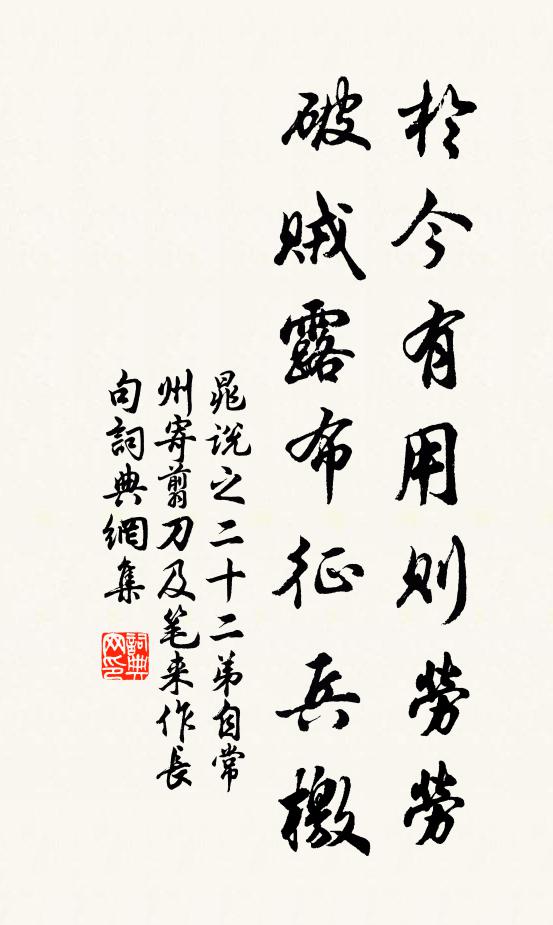 於今有用則勞勞
破賊露布征兵檄
晁说之二十二弟自常
州寄剪刀及笔来作長
句詞典網集
詞典网印